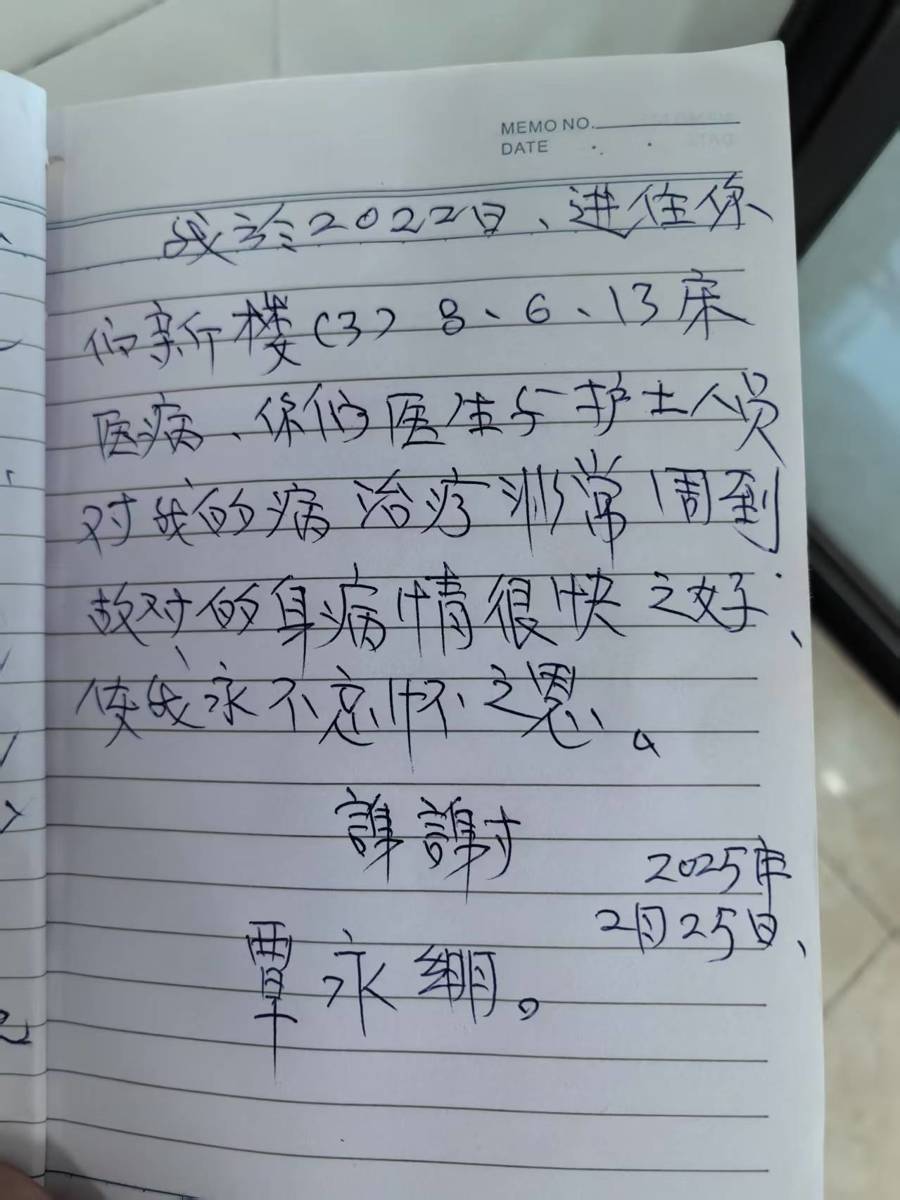 MEMO NO.
DATE
我於2022日、进住你
们新楼(3) 8、6、13床
医病、你们医生与护士人员
对我的病治疗非常周到
故对的身病情很快之好、
使我永不忘怀之恩。
謝謝
2025年
2月25日、
覃永绷。